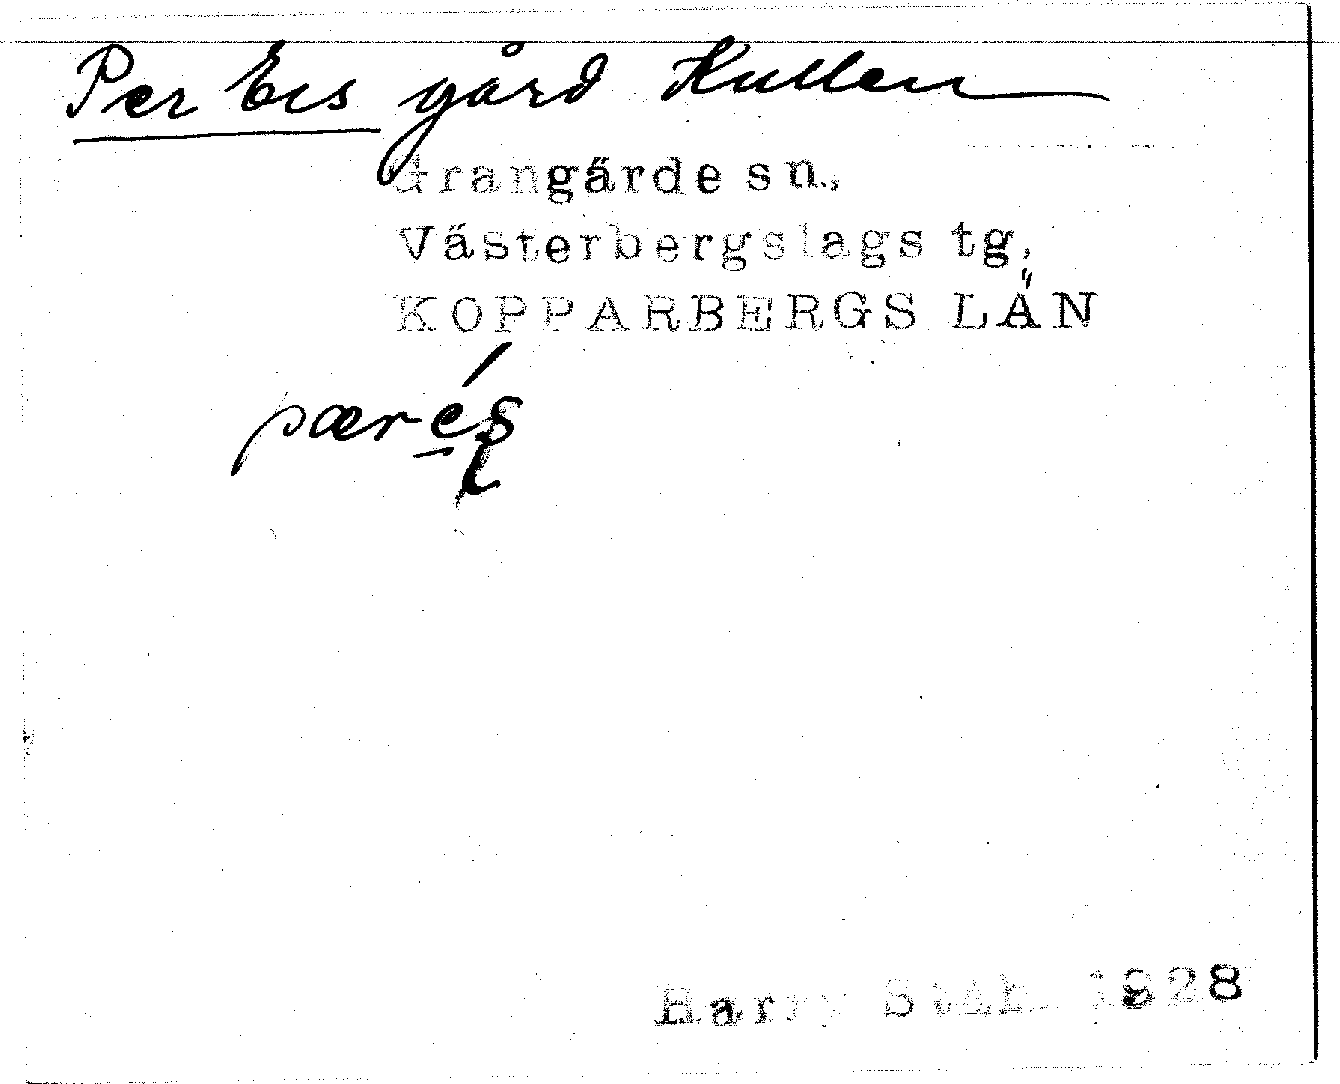 Per Ers gård Kullen
Grangärde sn.,
Västerbergslags tg,
KOPPARBERGS LÄN
pærés
Harry Ståhl 1928